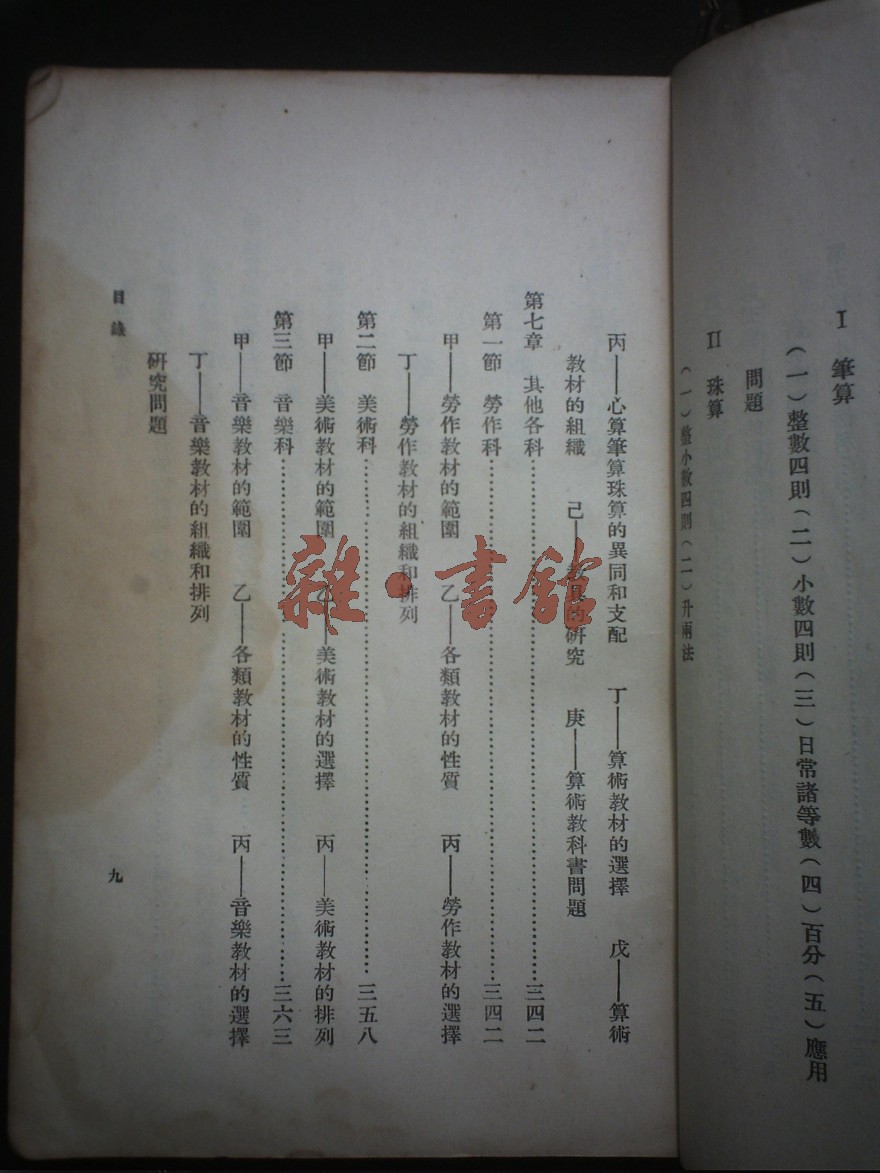 I 筆算
(一)整數四則(二)小數四則(三)日常諸等數(四)百分(五)應用
問題
II 珠算
(一)整小數四則(二)斤兩法
丙——心算筆算珠算的異同和支配 丁——算術教材的選擇 戊——算術
教材的組織 己——教具的研究 庚——算術教科書問題
第七章 其他各科……三四二
第一節 勞作科……三四二
甲——勞作教材的範圍 乙——各類教材的性質 丙——勞作教材的選擇
丁——勞作教材的組織和排列
第二節 美術科……三五八
甲——美術教材的範圍 乙——美術教材的選擇 丙——美術教材的排列
第三節 音樂科……三六三
甲——音樂教材的範圍 乙——各類教材的性質 丙——音樂教材的選擇
丁——音樂教材的組織和排列
研究問題
目錄
九
雜·書館